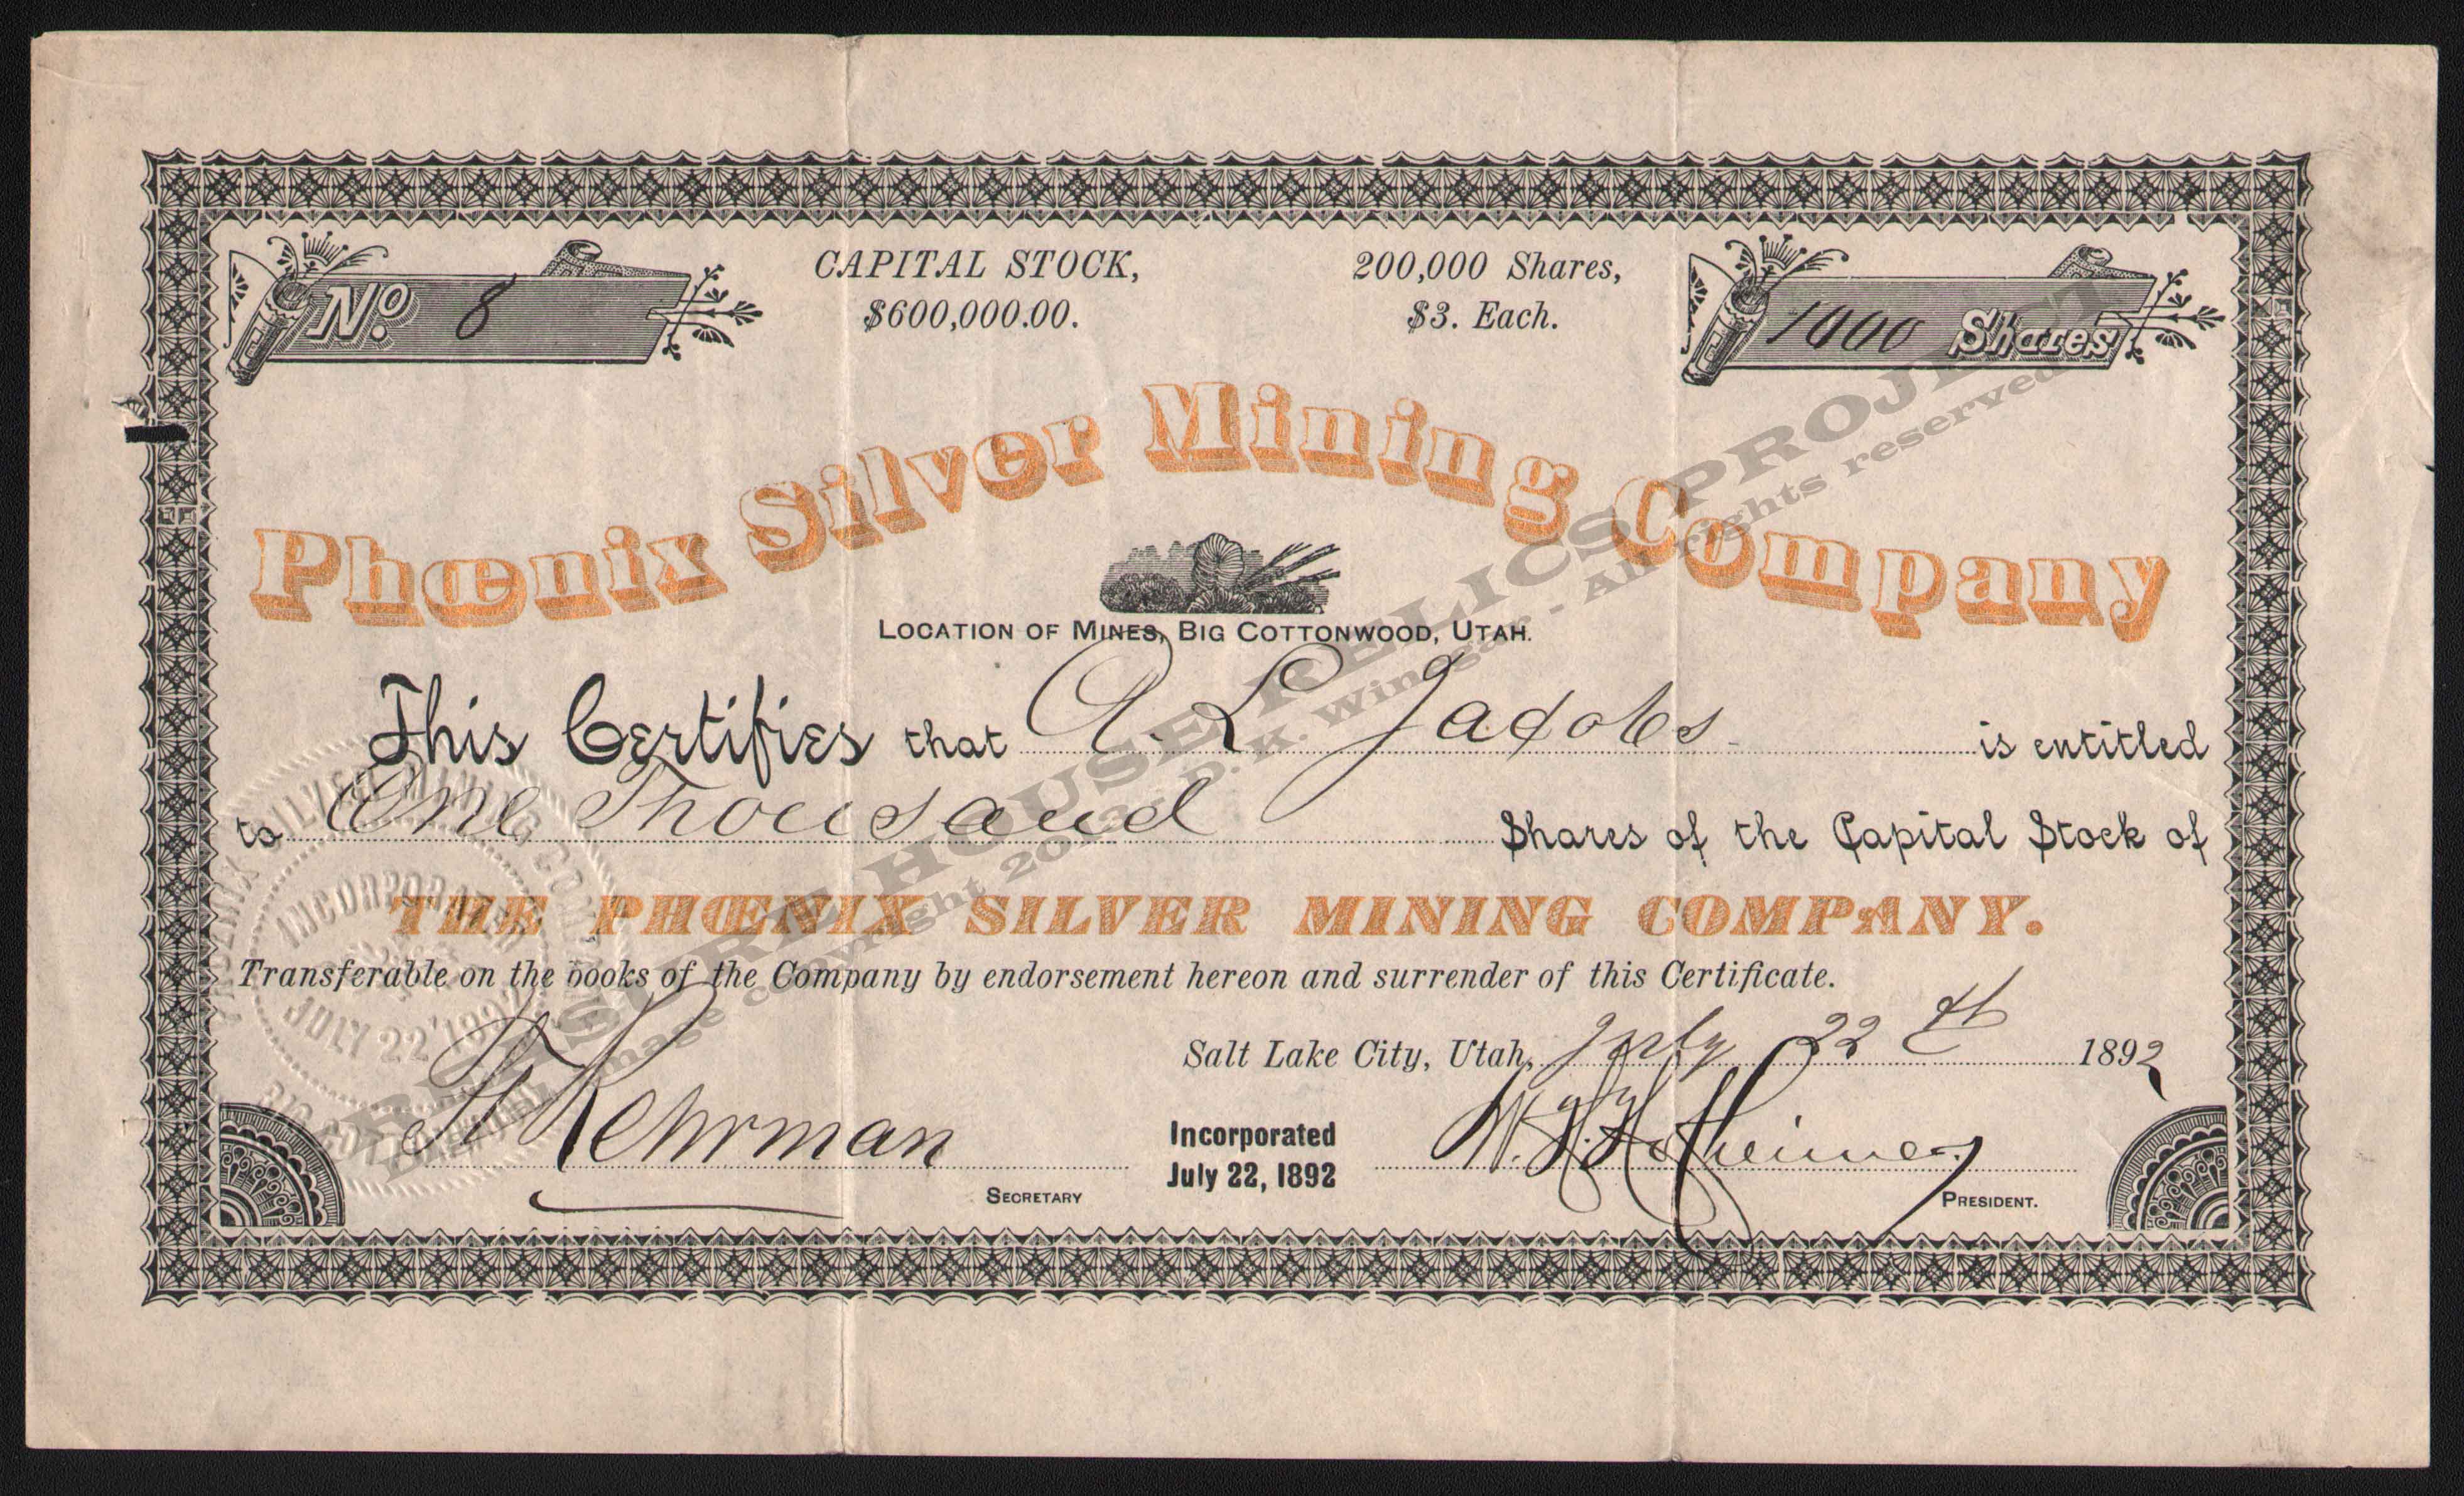 No. 8
CAPITAL STOCK,
$600,000.00.
200,000 Shares,
$3. Each.
1000 Shares
Phœnix Silver Mining Company
LOCATION OF MINES, BIG COTTONWOOD, UTAH.
This Certifies that A. L. Jacobs is entitled
to One Thousand Shares of the Capital Stock of
THE PHŒNIX SILVER MINING COMPANY.
Transferable on the books of the Company by endorsement hereon and surrender of this Certificate.
Salt Lake City, Utah, July 22th 1892
Kehrman
SECRETARY
Incorporated
July 22, 1892
PRESIDENT.
PHŒNIX SILVER MINING COMPANY
INCORPORATED
JULY 22, 1892
BIG COTTONWOOD
TREASURE HOUSE RELICS PROJECT
Digital image copyright 2013 - P. K. Winsor - All rights reserved